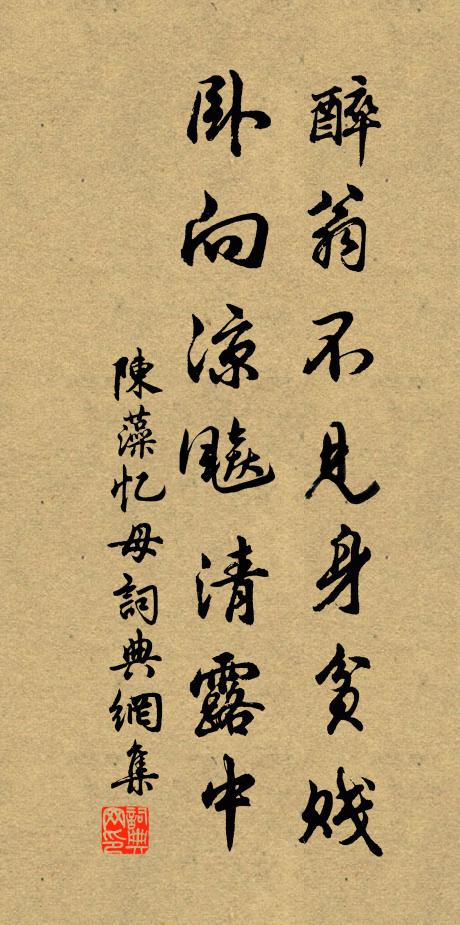 醉翁不見身貧賤
卧向涼飈清露中
陳藻忆母詞典網集
詞典网印